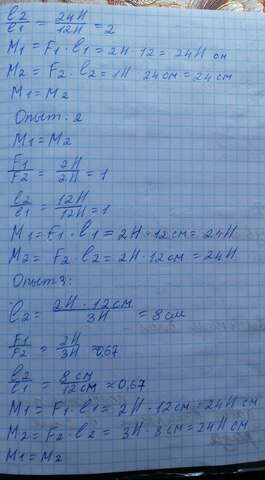 l2/l1 = 24H/12H = 2
M1 = F1 · l1 = 2H · 12 = 24H см
M2 = F2 · l2 = 1H · 24см = 24см
M1 = M2
Опыт: 2
M1 = M2
F1/F2 = 2H/2H = 1
l2/l1 = 12H/12H = 1
M1 = F1 · l1 = 2H · 12см = 24H
M2 = F2 · l2 = 2H · 12см = 24H
Опыт 3:
l2 = 2H · 12см/3H = 8см
F1/F2 = 2H/3H ≈ 0,67
l2/l1 = 8см/12см ≈ 0,67
M1 = F1 · l1 = 2H · 12см = 24см H
M2 = F2 · l2 = 3H · 8см = 24см H
M1 = M2